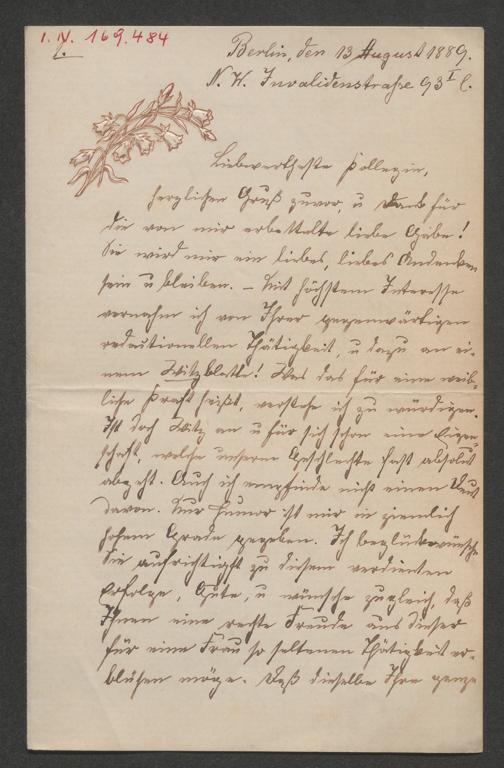 I. N. 169.484
1.
Berlin, den 13 August 1889.
N. W. Invalidenstraße 93 I l.
Liebwertheste Kollegin,
herzlichen Gruß zuvor, u Dank für
die von mir erbettelte liebe Gabe!
Sie wird mir ein liebes, liebes Andenken
sein u bleiben. – Mit höchstem Interesse
vernahm ich von Ihrer gegenwärtigen
redactionellen Thätigkeit, u dazu an ei-
nem Witzblatte! Was das für eine weib-
liche Kraft heißt, verstehe ich zu würdigen.
Ist doch Witz an u für sich schon eine Eigen-
schaft, welche unserem Geschlechte fast absolut
abgeht. Auch ich empfinde nicht einen
davon. Nur Humor ist mir in ziemlich
hohem Grade gegeben. Ich beglückwünsche
Sie aufrichtigst zu diesem verdienten
Erfolge, Gute, u wünsche zugleich, daß
Ihnen eine rechte Freude aus dieser
für eine Frau so seltenen Thätigkeit er-
blühen möge. Daß dieselbe Ihre ganze